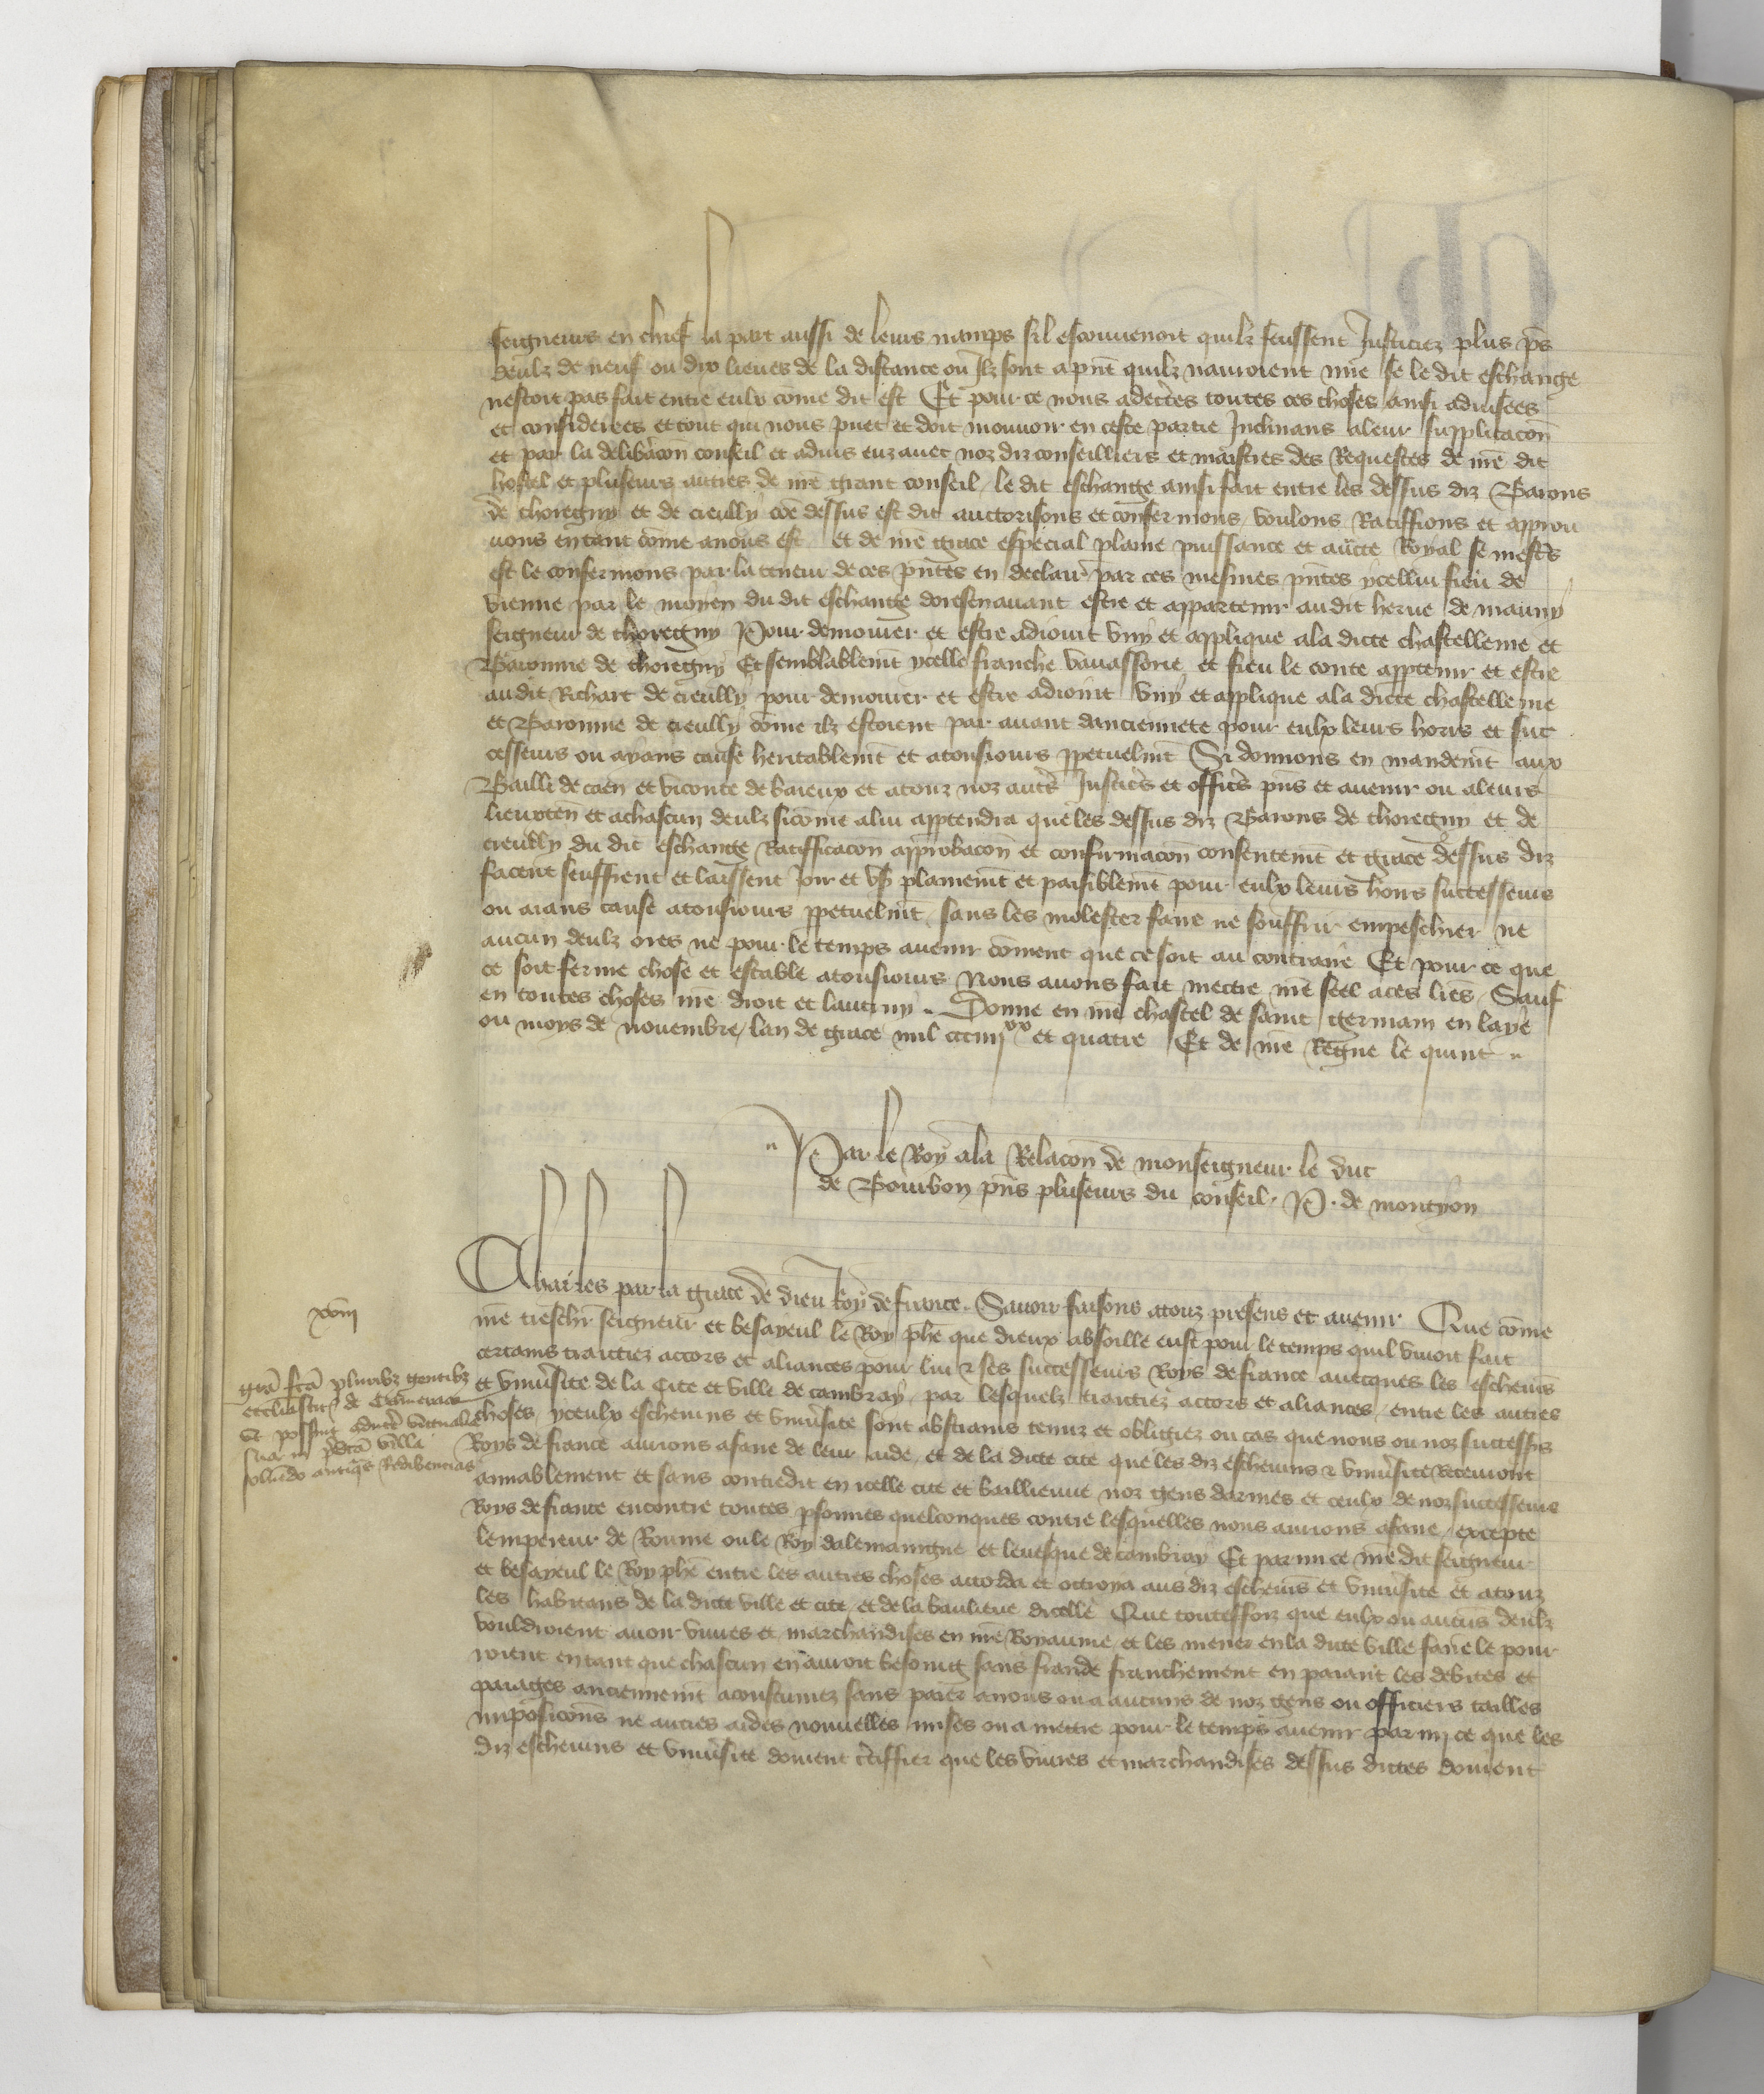 seigneurs en chief la part aussi de leurs namps sil esconvenoit quilz feussent Justiciez plus p̃s
deulz de neuf ou dix lieues de la distance ou Ilz sont a pñt quilz nauroient mie se le dit eschange
nestoit pas fait entre eulx cõme dit est Et pour ce nous adecertes toutes ces choses ainsi aduisees
et considerees et tout qui nous puet et doit mouuoir en ceste partie Inclinans a leur supplicacõn
et par la delibãcõn conseil et aduis euz auec noz diz conseilliers et maistres des Requestes de nr̃e dit
hostel et pluseurs autres de nr̃e grant conseil le dit eschange ainsi fait entre les dessus diz Barons
de thoregny et de creully cõe dessus est dit auctorisons et confermons voulons Ratiffions et approu
uons en tant cõme a nous est et de nr̃e grace especial plaine puissance et auc̃te Royal se mest̃s
est le confermons par la teneur de ces pñtes en declair̃ par ces mesmes pñtes ycellui fieu de
vienne par le moyen du dit eschange doresenauant estre et appartenir au dit herue de mauny
seigneur de thoregny Pour demourer et estre adioint vny et applique a la dicte chastellenie et
Baronnie de thoregny Et semblablemt̃ ycelle franche vauassorie et fieu le conte apptenir et estre
au dit Richart de creully pour demourer et estre adioint vny et applique a la dicte chastellenie
et Baronnie de creully cõme ilz estoient par auant danciennete pour eulx leurs hoirs et suc
cesseurs ou ayans cause heritablemt̃ et a tousiours ppetuelmt̃ Si donnons en mandemt̃ aux
Bailli de caen et viconte de baieux et a touz noz aut̃s Justic̃s et offic̃s pñs et auenir ou a leurs
lieuxteñ et a chascun deulz sicõme a lui apptendra que les dessus diz Barons de thoregny et de
creully du dit eschange Ratifficacõn approbacõn et confirmacõn consentemt̃ et grace dessus diz
facent seuffrent et laissent Joir et vs̃ plainemt̃ et paisiblemt̃ pour eulx leurs hoirs successeurs
ou aians cause a tousiours ppetuelmt̃ sans les molester faire ne souffrir empeschier ne
aucun deulz ores ne pour le temps auenir cõment que ce soit au contraire Et pour ce que
ce soit ferme chose et estable a tousiours Nous auons fait mectre nr̃e seel a ces lr̃es Sauf
en toutes choses nr̃e droit et lautruy. Donne en nr̃e chastel de saint germain en laye
ou moys de nouembre lan de grace mil ccc iiij xx et quatre Et de nr̃e Regne le quint
Par le Roy a la Relacõn de monseigneur le duc
de Bourbon pñs pluseurs du conseil. P. de montyon
xviij
grã fc̃a pluribz gentibz
eccl̃iasticis de
Ut possint aducẽ victualia
sua in p̃dc̃ã villã
soluẽdo antiq̃s Redibencias
Charles par la grace de dieu Roy de france. Sauoir faisons a touz presens et auenir Que cõme
nr̃e treschr̃ seigneur et besayeul le Roy ph̃e que dieux absoille eust pour le temps quil viuoit fait
certains traictiez accors et aliances pour lui & ses successeurs Roys de france auecques les escheuĩs
et vniũsite de la Cite et ville de cambray par lesquelz traictiez accors et aliances entre les autres
choses yceulx escheuins et vniũsite sont abstrains tenuz et obligiez ou cas que nous ou noz success̃s
Roys de france aurions a faire de leur aide et de la dicte cite que les diz escheuins & vniũsite Receuront
amiablement et sans contredit en icelle cite et baillieuue noz gens darmes et ceulx de noz successeurs
Roys de france encontre toutes p̃sonnes quelconques contre lesquelles nous aurions a faire, excepte
lempereur de Romme ou le Roy dalemaingne et leuesque de cambray Et parmi ce nr̃e dit seigneur
et besayeul le Roy ph̃e entre les autres choses accorda et octroya aus diz escheuĩs et vniũsite et a touz
les habitans de la dicte ville et cite et de la banlieue dicelle Que toutesfoiz que eulx ou aucũs deulz
vouldroient auoir viures et marchandises en nr̃e Royaume et les mener en la dicte ville faire le pour
roient en tant que chascun en auroit besoing sans fraude franchement en paiant les debites et
paiages anciennemt̃ acoustumez sans paier a nous ou a aucuns de noz gens ou officiers tailles
imposicõns ne autres aides nouuelles mises ou a mettre pour le temps auenir parmy ce que les
diz escheuins et vniũsite doiuent c̃tiffier que les viures et marchandises dessus dictes doiuent